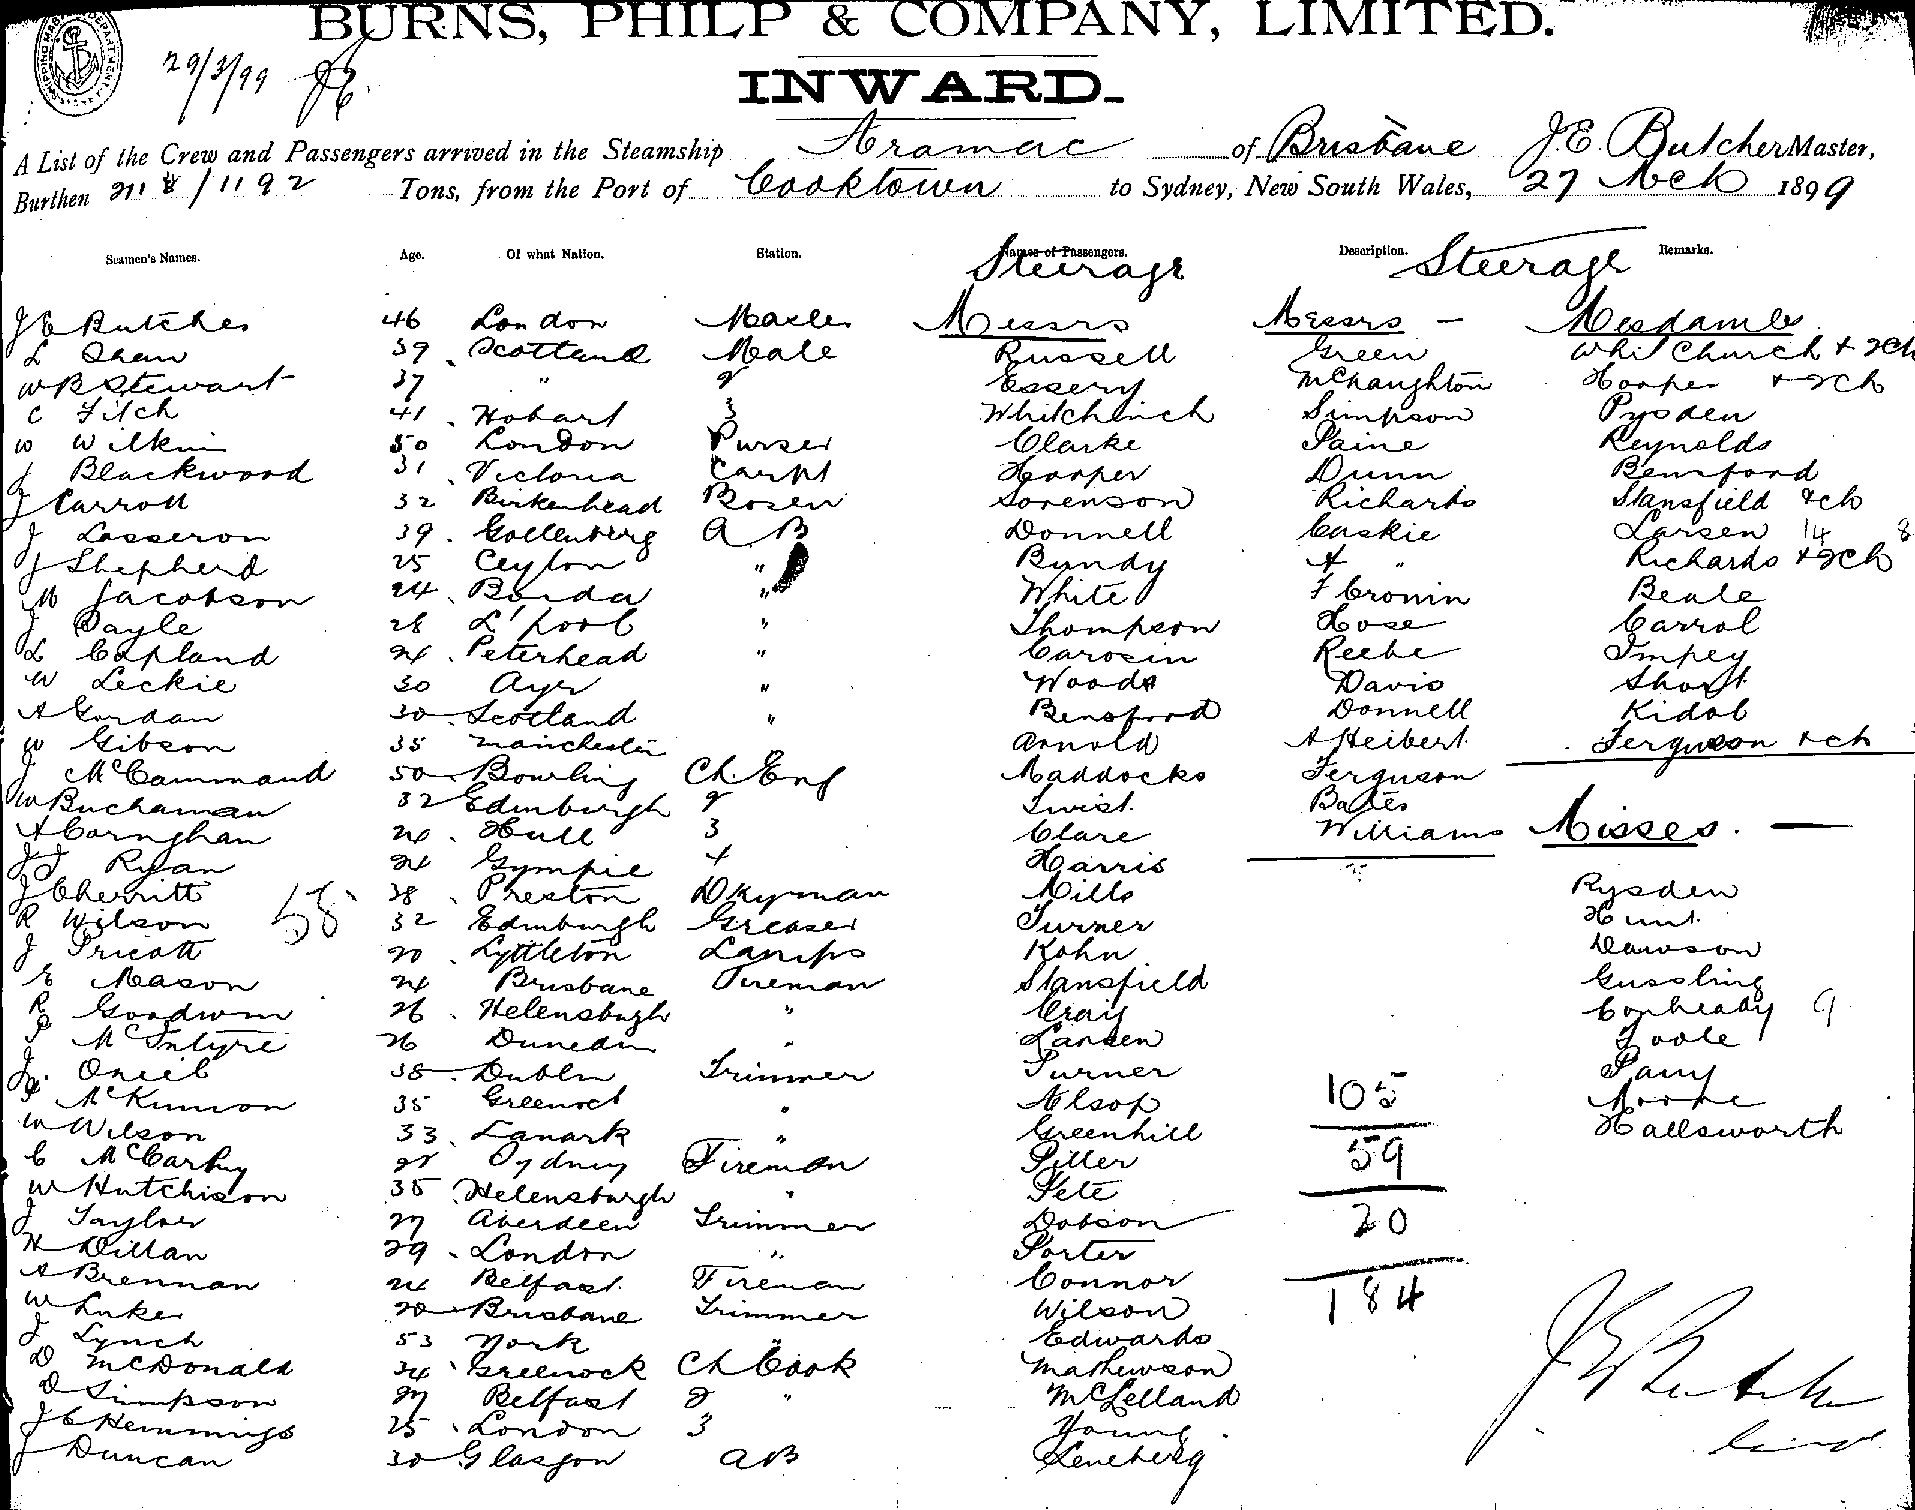 BURNS, PHILP & COMPANY, LIMITED.
29/3/99
INWARD.
A List of the Crew and Passengers arrived in the Steamship Aramac of Brisbane J.E. Butcher Master,
Burthen 1192 Tons, from the Port of Cooktown to Sydney, New South Wales, 27 Mch 1899
Seamen's Names. Age. Of what Nation. Station. Names of Passengers. Description. Remarks.
Steerage Steerage
J E Butcher 46 London Master Messrs Messrs — Mesdames
L Shaw 39 Scotland Mate Russell Green Whitchurch + 2ch
W B Stewart 37 " 2 Essery McNaughton Hooper + 2ch
C Fitch 41 Hobart 3 Whitchurch Simpson Pysden
W Wilkin 50 London Purser Clarke Paine Reynolds
J Blackwood 31 Victoria Carpt Hooper Dunn Bensford
J Carroll 32 Birkenhead Bosen Sorenson Richards Stansfield & ch
J Losseron 39 Gottenberg A B Donnell Caskie Larsen 14 8
J Shepherd 25 Ceylon " Bundy A " Richards + 2ch
M Jacobson 24 " White F Cronin Beale
J Doyle 28 L'pool " Thompson Hose Carrol
L Copland 24 Peterhead " Carosin Reebe Impey
W Leckie 30 Ayr " Woods Davis Short
A Gordon 30 Scotland " Bensford Donnell Kidol
W Gibson 35 Manchester Arnold A Heibert Ferguson + ch
J McCammand 50 Bowling Ch. Eng Maddocks Ferguson
W Buchanan 32 Edinburgh 2 Twist Bates
A Carnghan 24 Hull 3 Clare Williams Misses. —
J J Ryan 24 Gympie 4 Harris
J Cherritt 38 Preston Dkyman Mills Rysden
R Wilson 58 32 Edinburgh Greaser Turner Hunt
J Pricott 20 Lyttleton Lamps Kohn Dawson
E Mason 24 Brisbane Fireman Stansfield Gussling
R Goodwin 26 Helensburgh " Craig Conheady 9
P McIntyre 26 Dunedin " Larsen Toole
J. Oneil 38 Dublin Trimmer Turner Parry
P McKinnon 35 Greenock " Alsop 105 Moore
W Wilson 33 Lanark " Greenhill Hallsworth
C McCarthy Sydney Fireman Pitter 59
W Hutchison 35 Helensburgh " Pete
J Taylor 27 Aberdeen Trimmer Dobson 20
H Dillan 29 London " Porter
A Brennan 24 Belfast Fireman Connor 184
W Luker 20 Brisbane Trimmer Wilson
J Lynch 53 York " Edwards
D McDonald 34 Greenock Ch Cook Mathewson
D Simpson 27 Belfast 2 " McLelland
J C Hemmings 25 London 3 Young
J Duncan 30 Glasgow AB Leneberg
J E Butcher